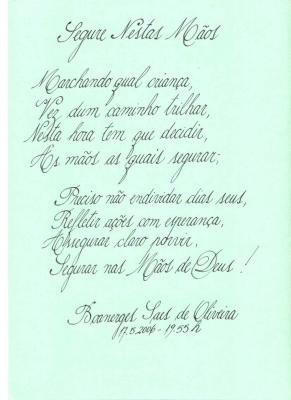 Segure Nestas Mãos
Marchando qual criança,
Vez dum caminho trilhar,
Nesta hora tem que decidir,
As mãos as quais segurar;
Preciso não endividar dias seus,
Refletir ações com esperança,
Assegurar claro porvir,
Segurar nas Mãos de Deus!
Boanerges Saes de Oliveira
17.5.2006 - 19:55 h